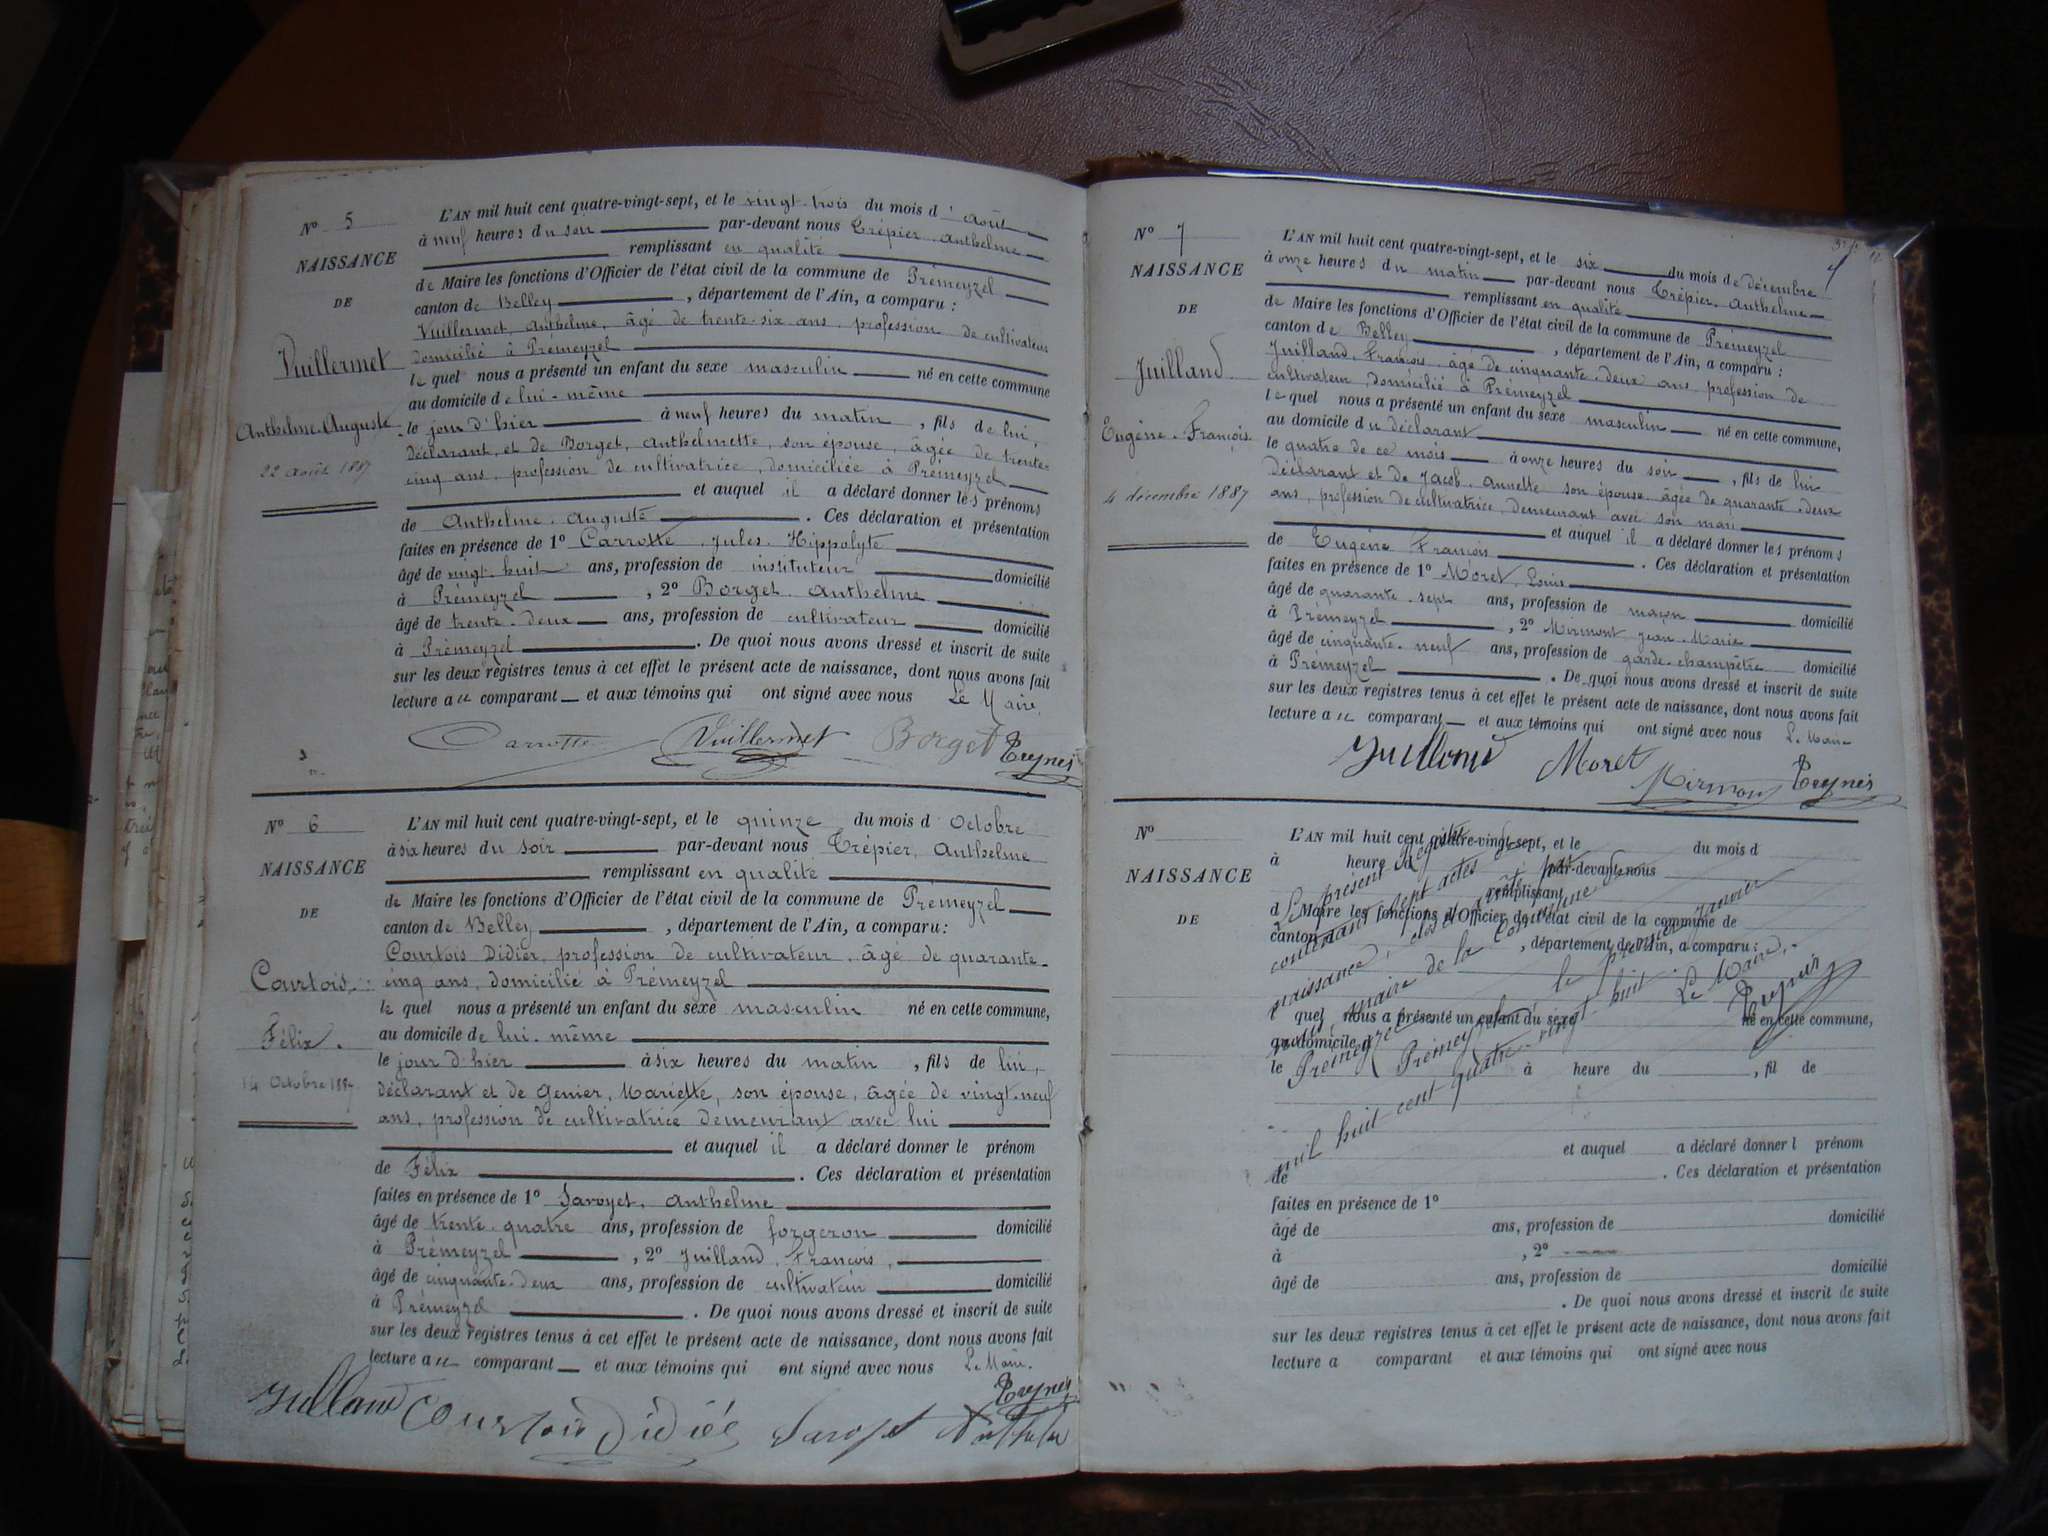 N° 5
NAISSANCE
DE
Vuillermet
Anthelme Auguste
22 août 1887
L'AN mil huit cent quatre-vingt-sept, et le vingt-trois du mois d'août
à neuf heures du soir par-devant nous Trépier Anthelme
remplissant en qualité
de Maire les fonctions d'Officier de l'état civil de la commune de Prémeyzel
canton de Belley, département de l'Ain, a comparu :
Vuillermet, Anthelme, âgé de trente-six ans, profession de cultivateur
domicilié à Prémeyzel
le quel nous a présenté un enfant du sexe masculin né en cette commune
au domicile de lui-même
le jour d'hier à neuf heures du matin, fils de lui,
déclarant, et de Borget, Anthelmette, son épouse, âgée de trente-
cinq ans, profession de cultivatrice, domiciliée à Prémeyzel
et auquel il a déclaré donner les prénoms
de Anthelme Auguste. Ces déclaration et présentation
faites en présence de 1° Carrotte, Jules Hippolyte
âgé de vingt-huit ans, profession de instituteur domicilié
à Prémeyzel, 2° Borget Anthelme
âgé de trente-deux ans, profession de cultivateur domicilié
à Prémeyzel. De quoi nous avons dressé et inscrit de suite
sur les deux registres tenus à cet effet le présent acte de naissance, dont nous avons fait
lecture au comparant et aux témoins qui ont signé avec nous Le Maire.
Carrotte Vuillermet Borget
N° 6
NAISSANCE
DE
Courtois
Félix.
14 Octobre 1887
L'AN mil huit cent quatre-vingt-sept, et le quinze du mois d Octobre
à six heures du soir par-devant nous Trépier, Anthelme
remplissant en qualité
de Maire les fonctions d'Officier de l'état civil de la commune de Prémeyzel
canton de Belley, département de l'Ain, a comparu :
Courtois Didier, profession de cultivateur, âgé de quarante-
cinq ans, domicilié à Prémeyzel
le quel nous a présenté un enfant du sexe masculin né en cette commune,
au domicile de lui-même
le jour d'hier à six heures du matin, fils de lui,
déclarant et de Genier, Mariette, son épouse, âgée de vingt-neuf
ans, profession de cultivatrice demeurant avec lui
et auquel il a déclaré donner le prénom
de Félix. Ces déclaration et présentation
faites en présence de 1° Savoyet, Anthelme
âgé de trente-quatre ans, profession de forgeron domicilié
à Prémeyzel, 2° Juilland, François,
âgé de cinquante-deux ans, profession de cultivateur domicilié
à Prémeyzel. De quoi nous avons dressé et inscrit de suite
sur les deux registres tenus à cet effet le présent acte de naissance, dont nous avons fait
lecture au comparant et aux témoins qui ont signé avec nous Le Maire.
N° 7
NAISSANCE
DE
Juilland
Eugène François
4 décembre 1887
L'AN mil huit cent quatre-vingt-sept, et le six du mois de décembre
à onze heures du matin par-devant nous Trépier Anthelme
remplissant en qualité
de Maire les fonctions d'Officier de l'état civil de la commune de Prémeyzel
canton de Belley, département de l'Ain, a comparu :
Juilland, François, âgé de cinquante-deux ans, profession de
cultivateur, domicilié à Prémeyzel
le quel nous a présenté un enfant du sexe masculin né en cette commune,
au domicile du déclarant
le quatre de ce mois à onze heures du soir, fils de lui
déclarant et de Jacob, Annette son épouse âgée de quarante-deux
ans, profession de cultivatrice, demeurant avec son mari
et auquel il a déclaré donner les prénoms
de Eugène François. Ces déclaration et présentation
faites en présence de 1° Moret, Louis
âgé de quarante-sept ans, profession de maçon domicilié
à Prémeyzel, 2° Mirmont Jean-Marie
âgé de cinquante-neuf ans, profession de garde-champêtre domicilié
à Prémeyzel. De quoi nous avons dressé et inscrit de suite
sur les deux registres tenus à cet effet le présent acte de naissance, dont nous avons fait
lecture au comparant et aux témoins qui ont signé avec nous Le Maire
Moret
N°
NAISSANCE
DE
L'AN mil huit cent quatre-vingt-sept, et le du mois d
à heure d par-devant nous
remplissant
d Maire les fonctions d'Officier de l'état civil de la commune de
canton, département de l'Ain, a comparu :
quel nous a présenté un enfant du sexe né en cette commune,
au domicile d
le à heure du, fil de
et auquel a déclaré donner l prénom
de. Ces déclaration et présentation
faites en présence de 1°
âgé de ans, profession de domicilié
à, 2°
âgé de ans, profession de domicilié
. De quoi nous avons dressé et inscrit de suite
sur les deux registres tenus à cet effet le présent acte de naissance, dont nous avons fait
lecture a comparant et aux témoins qui ont signé avec nous
Le présent registre
contenant sept actes de
naissance, clos et arrêté par
nous, maire de la Commune de
Prémeyzel
Prémeyzel, le premier janvier
mil huit cent quatre-vingt-huit.
Le Maire,